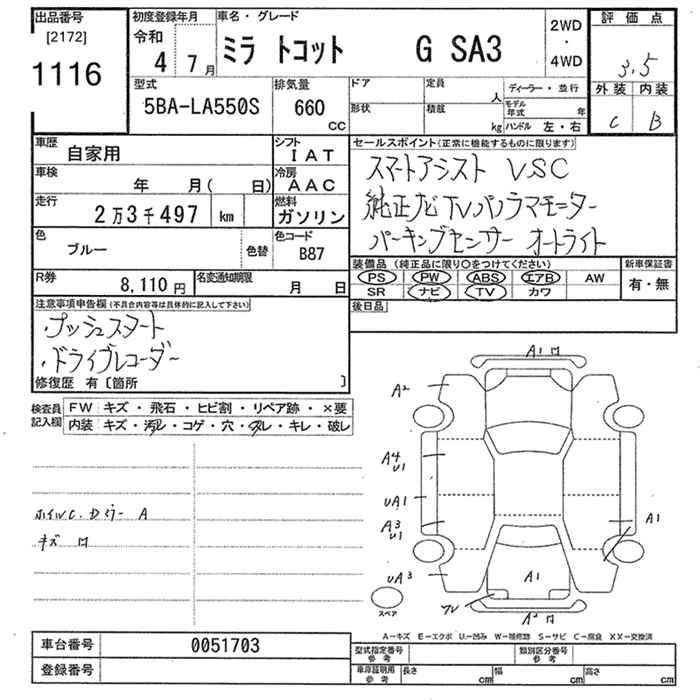 出品番号
[2172]
1116
初度登録年月
令和
4 年 7 月
車名・グレード
ミラ トコット G SA3
2WD
・
4WD
評価点
3.5
外装 内装
C B
型式
5BA-LA550S
排気量
660
CC
ドア
形状
定員
人
積載
kg
ディーラー・並行
モデル年式 年
ハンドル 左・右
車歴
自家用
シフト
IAT
車検
年 月( 日)
冷房
AAC
走行
2万3千497 km
燃料
ガソリン
色
ブルー
色替
色コード
B87
R券
8,110円
名変通知期限
月 日
セールスポイント(正常に機能するものに限ります)
スマートアシスト VSC
純正ナビTVパノラマモニター
パーキングセンサー オートライト
装備品(純正品に限り○をつけてください)
PS PW ABS エアB AW
SR ナビ TV カワ
新車保証書
有・無
後日品
注意事項申告欄(不具合内容等は具体的に記入して下さい)
・プッシュスタート
・ドライブレコーダー
修復歴 有〔箇所 〕
検査員記入欄
FW キズ・飛石・ヒビ割・リペア跡・×要
内装 キズ・汚レ・コゲ・穴・スレ・キレ・破レ
ホイルC. Dミラー A
キズ
A1
A2
A4
U1
UA1
A3
U1
A1
UA3
A1
A2
スペア
A-キズ E-エクボ U-凹み W-補修跡 S-サビ C-腐食 XX-交換済
車台番号
0051703
登録番号
型式指定番号
参考
類別区分番号
参考
車庫証明用
参考
長さ cm 幅 cm 高さ cm